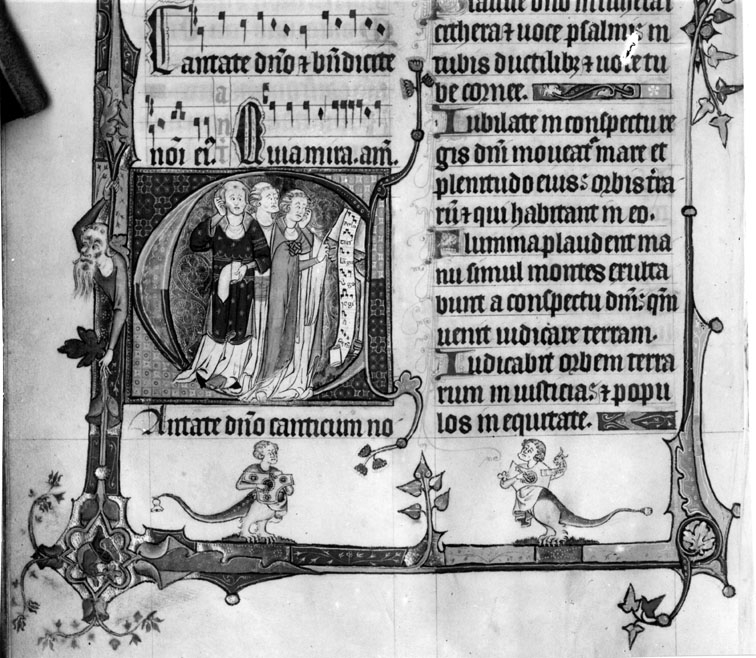 Cantate dño ⁊ bñdicite
noī ei⁹. Quia mira. añ.
Cantate dño canticum no
cithera ⁊ uoce psalmi: in
tubis ductilibꝫ ⁊ uoce tu
be cornee.
Iubilate in conspectu re
gis dñi moueat᷑ mare et
plenitudo eius: orbis t̄ra
rū ⁊ qui habitant in eo.
Flumina plaudent ma
nu simul montes exulta
bunt a conspectu dñi: qm̄
uenit iudicare terram.
Iudicabit orbem terra
rum in iusticia: ⁊ popu
los in equitate.